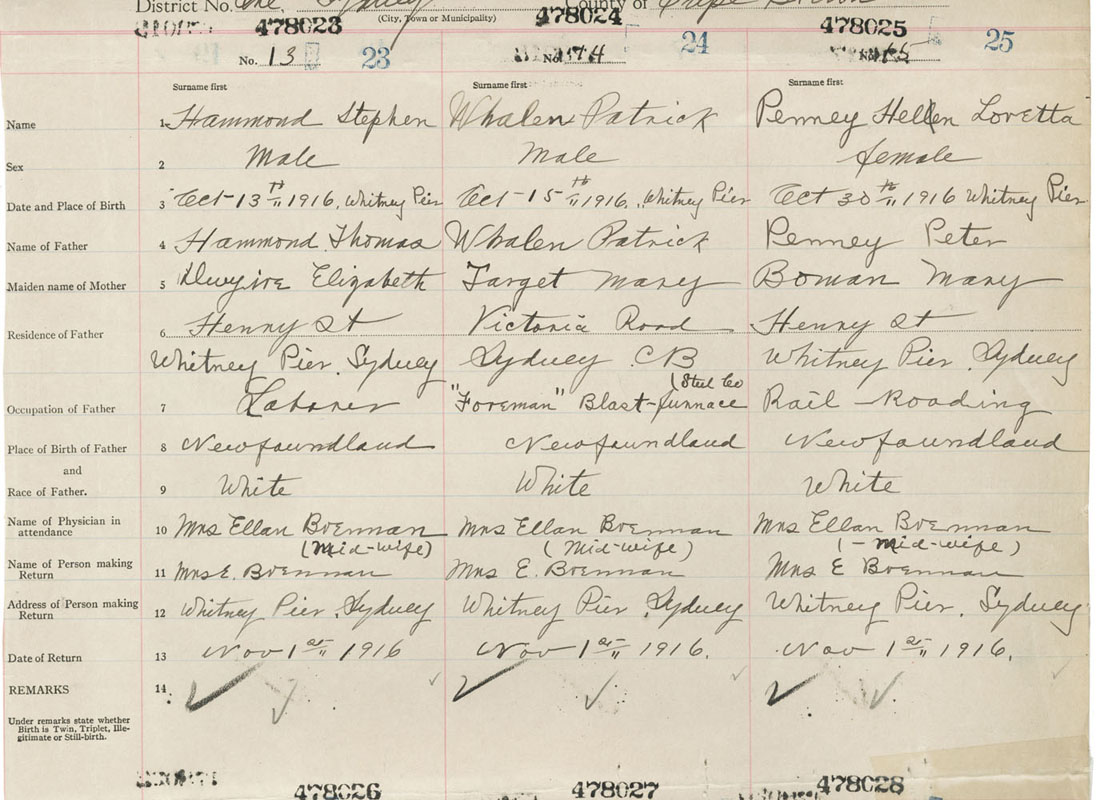 District No. One, Sydney County of Cape Breton
(City, Town or Municipality)
478023 478024 478025
No. 13 23 No. 14 24 No. 25
Surname first Surname first Surname first
Name 1 Hammond Stephen Whalen Patrick Penney Hellen Loretta
Sex 2 Male Male female
Date and Place of Birth 3 Oct-13th 1916, Whitney Pier Oct-15th 1916, Whitney Pier Oct 30th 1916 Whitney Pier
Name of Father 4 Hammond Thomas Whalen Patrick Penney Peter
Maiden name of Mother 5 Elizabeth Target Mary Boman Mary
Residence of Father 6 Henry St Victoria Road Henry St
Whitney Pier, Sydney Sydney CB Whitney Pier, Sydney
(Steel Co
Occupation of Father 7 Laborer "Foreman" Blast-furnace Rail-Roading
Place of Birth of Father 8 Newfoundland Newfoundland Newfoundland
and
Race of Father. 9 White White White
Name of Physician in attendance 10 Mrs Ellan Brennan Mrs Ellan Brennan Mrs Ellan Brennan
(Mid-wife) (Mid-wife) (-Mid-wife)
Name of Person making Return 11 Mrs E. Brennan Mrs E. Brennan Mrs E Brennan
Address of Person making Return 12 Whitney Pier, Sydney Whitney Pier, Sydney Whitney Pier, Sydney
Date of Return 13 Nov 1st 1916 Nov 1st 1916. Nov 1st 1916.
REMARKS 14
Under remarks state whether
Birth is Twin, Triplet, Ille-
gitimate or Still-birth.
478026 478027 478028